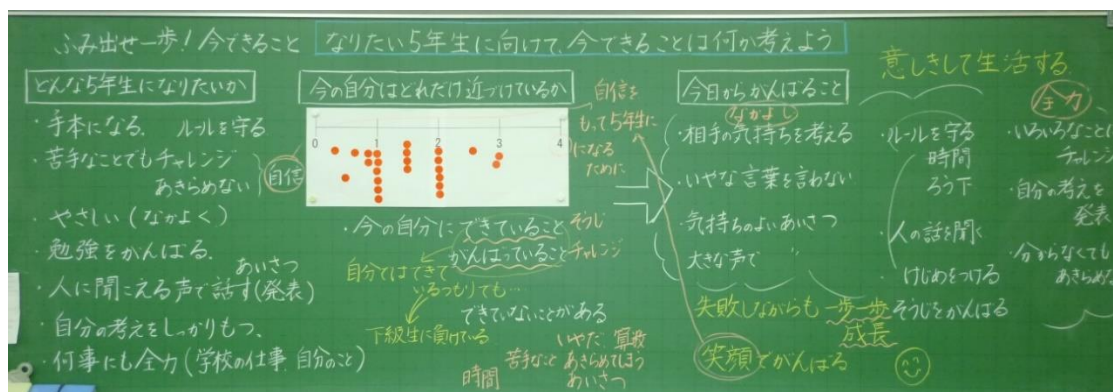 ふみ出せ一歩！今できること
なりたい5年生に向けて、今できることは何か考えよう
どんな5年生になりたいか
・手本になる、 ルールを守る
・苦手なことでもチャレンジ
あきらめない
自信
・やさしい(なかよく)
・勉強をがんばる、
あいさつ
・人に聞こえる声で話す(発表)
・自分の考えをしっかりもつ、
・何事にも全力(学校の仕事 自分のこと)
今の自分はどれだけ近づけているか
0 1 2 3 4
自信を
もって5年生に
になる
ために
・今の自分にできていること そうじ
がんばっていること チャレンジ
自分ではできて
いるつもりでも…
できていないことがある
下級生に負けている
いやだ 算数
苦手なこと あきらめてしまう
時間 あいさつ
今日からがんばること
なかよし
・相手の気持ちを考える
・いやな言葉を言わない
・気持ちのよいあいさつ
大きな声で 〃
失敗しながらも一歩一歩
成長
笑顔でがんばる
意しきして生活する
・ルールを守る
時間
ろう下
・人の話を聞く
・けじめをつける
そうじをがんばる
全力
・いろいろなことに
チャレンジ
・自分の考えを
発表
・分からなくても
あきらめ